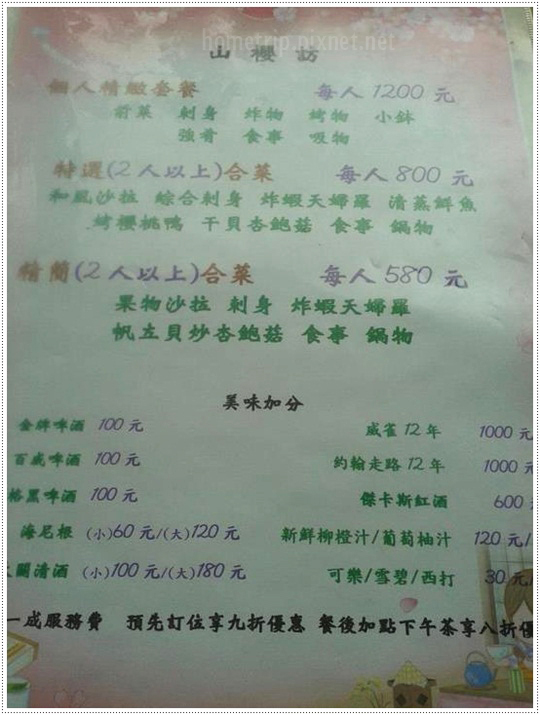 hometrip.pixnet.net
山櫻訪
個人精緻套餐 每人1200元
前菜 刺身 炸物 烤物 小鉢
強肴 食事 吸物
特選(2人以上)合菜 每人800元
和風沙拉 綜合刺身 炸蝦天婦羅 清蒸鮮魚
烤櫻桃鴨 干貝杏鮑菇 食事 鍋物
精簡(2人以上)合菜 每人580元
果物沙拉 刺身 炸蝦天婦羅
帆立貝炒杏鮑菇 食事 鍋物
美味加分
金牌啤酒 100元 威雀12年 1000元
百威啤酒 100元 約翰走路12年 1000元
格黑啤酒 100元 傑卡斯紅酒 600
海尼根 (小)60元/(大)120元 新鮮柳橙汁/葡萄柚汁 120元/
關清酒 (小)100元/(大)180元 可樂/雪碧/西打 30元/
一成服務費 預先訂位享九折優惠 餐後加點下午茶享八折優